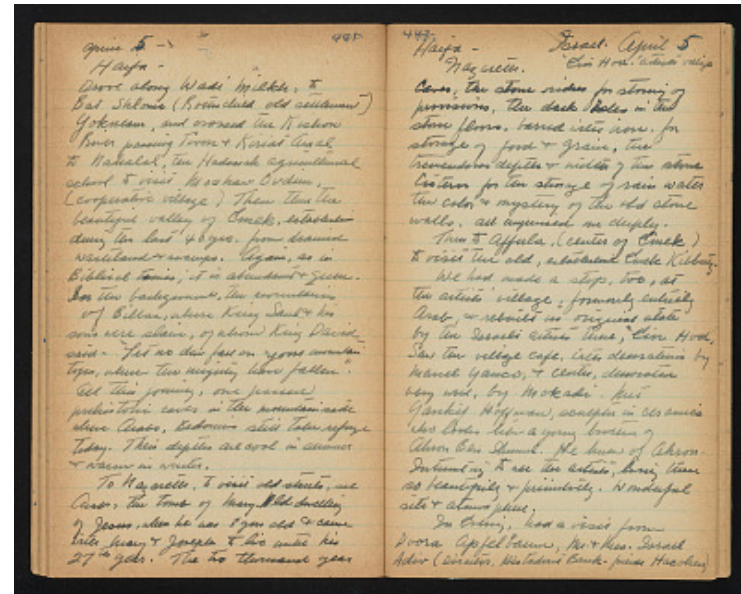 April 5 →
Haifa -
Drove along Wadi Milkh, to
Bat Shlomo (Rothschild old settlement)
Yokneam, and crossed the Kishon
River passing Tivon & Kiriat Amal
to Nahalal, the Hadassah agricultural
school to visit Moshav Ovdim,
(cooperative village) Then thru the
beautiful valley of Emek, established
during the last 40 yrs. from drained
wasteland & swamps. Again, as in
Biblical times, it is abundant & green.
In the background, the mountains
of Gilboa, where King Saul & his
sons were slain, of whom King David
said - "Let no dew fall on yours mountain
tops, where the mighty have fallen".
All this journey, one passes
prehistoric caves in the mountain side
where Arabs, Bedouins still take refuge
today. Their depths are cool in summer
& warm in winter.
To Nazareth, to visit old streets, see
Arabs, the tomb of Mary, old dwelling
of Jesus, when he was 8 yrs old & came
with Mary & Joseph to live until his
27th year. The two thousand year
447
Haifa - Israel. April 5
Nazareth. Ein Hod. artists village
Caves, the stone niches for storing of
provisions, the dark holes in the
stone floors, barred with iron, for
storage of food & grain, the
tremendous depths & width of the stone
cisterns for the storage of rain water
the color & mystery of the old stone
walls, all impressed me deeply.
Then to Affula, (center of Emek)
to visit the old, established Kibbutz.
We had made a stop, too, at
the artists' village, formerly entirely
Arab, & rebuilt in original state
by the Israeli artists there, "Ein Hod.
Saw the village cafe, with decorations by
Marcel Yanco, & center, decorated
very well, by Mokadi. Met
Hoffman, sculptor in ceramics
who looks like a young brother of
Ahron Ben Shmuel. He knew of Ahron.
Interesting to see the artists, living there
so beautifully & primitively. Wonderful
site & atmosphere.
In Evening, had a visit from
Dvora Apfelbaum, Mr & Mrs. Israel
Adiv